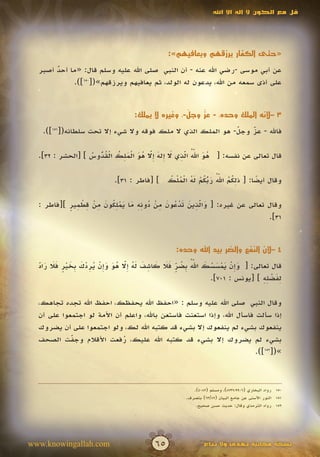 قل مع الكون لا إله إلا الله
«حتى الكفار يرزقهم ويعافيهم»:
عن أبي موسى -رضي الله عنه - أن النبي صلى الله عليه وسلم قال: «ما أحدٌ أصبر
على أذى سمعه من الله، يدعون له الولد، ثم يعافيهم ويرزقهم»([١٥١]).
٣ –لأنه الملك وحده، - عزّ وجل-، وغيره لا يملك:
فالله – عزّ وجلّ- هو الملك الذي لا ملك فوقه ولا شيء إلا تحت سلطانه([١٥٢]).
قال تعالى عن نفسه: [ هُوَ اللهُ الَّذِي لَا إِلَهَ إِلَّا هُوَ الْمَلِكُ الْقُدُّوسُ ] [الحشر : ٢٣].
وقال تعالى أيضًا: [ ذَلِكُمُ اللهُ رَبُّكُمْ لَهُ الْمُلْكُ ] [فاطر : ٣١].
وقال تعالى عن غيره: [ وَالَّذِينَ تَدْعُونَ مِنْ دُونِهِ مَا يَمْلِكُونَ مِنْ قِطْمِيرٍ ][فاطر :
٣١].
٤ –لأن النفع والضر بيد الله وحده:
قال تعالى: [ وَإِنْ يَمْسَسْكَ اللهُ بِضُرٍّ فَلَا كَاشِفَ لَهُ إِلَّا هُوَ وَإِنْ يُرِدْكَ بِخَيْرٍ فَلَا رَادَّ
لِفَضْلِهِ ] [يونس : ٧٠١].
وقال النبي صلى الله عليه وسلم : «احفظ الله يحفظك، احفظ الله تجده تجاهك،
إذا سألت فاسأل الله، وإذا استعنت فاستعن بالله، واعلم أن الأمة لو اجتمعوا على أن
ينفعوك بشيء لم ينفعوك إلا بشيء قد كتبه الله لك، ولو اجتمعوا على أن يضروك
بشيء لم يضروك إلا بشيء قد كتبه الله عليك، رُفعت الأقلام وجفّت الصحف
»([١٥٣]).
١٥٢ النور الأسنى عن جامع البيان بتصرف.
١٥٣ رواه الترمذي وقال: حديث حسن صحيح.
www.knowingallah.com
٦٥